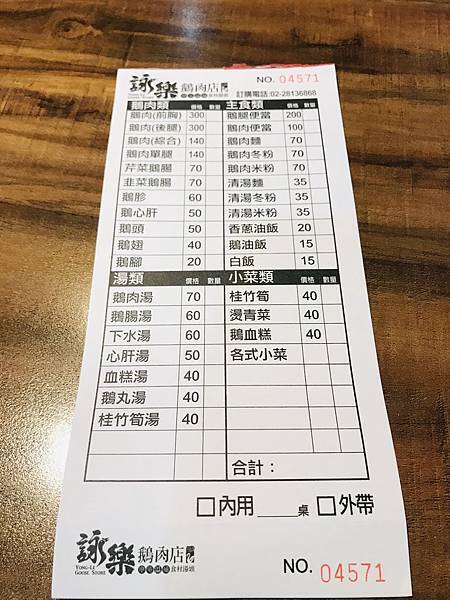 詠樂 鵝肉店 NO. 04571
YONG-LE GOOSE STORE 食材湯頭 訂購電話:02-28136868
鵝肉類 價格 數量 主食類 價格 數量
鵝肉(前胸) 300 鵝腿便當 200
鵝肉(後腿) 300 鵝肉便當 100
鵝肉(綜合) 140 鵝肉麵 70
鵝肉單腿 140 鵝肉冬粉 70
芹菜鵝腸 70 鵝肉米粉 70
韭菜鵝腸 70 清湯麵 35
鵝胗 60 清湯冬粉 35
鵝心肝 50 清湯米粉 35
鵝頭 50 香蔥油飯 20
鵝翅 40 鵝油飯 15
鵝腳 20 白飯 15
湯類 價格 數量 小菜類 價格 數量
鵝肉湯 70 桂竹筍 40
鵝腸湯 60 燙青菜 40
下水湯 60 鵝血糕 40
心肝湯 50 各式小菜
血糕湯 40
鵝丸湯 40
桂竹筍湯 40
合計：
□內用____桌 □外帶
詠樂 鵝肉店
YONG-LE GOOSE STORE 食材湯頭 NO. 04571